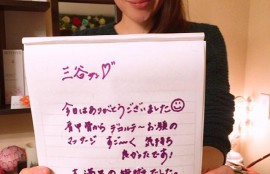 三谷の♡
今日はありがとうございました☺
肩甲骨から デコルテ～お顔の
マッサージ すご～く 気持ち
良かったです!